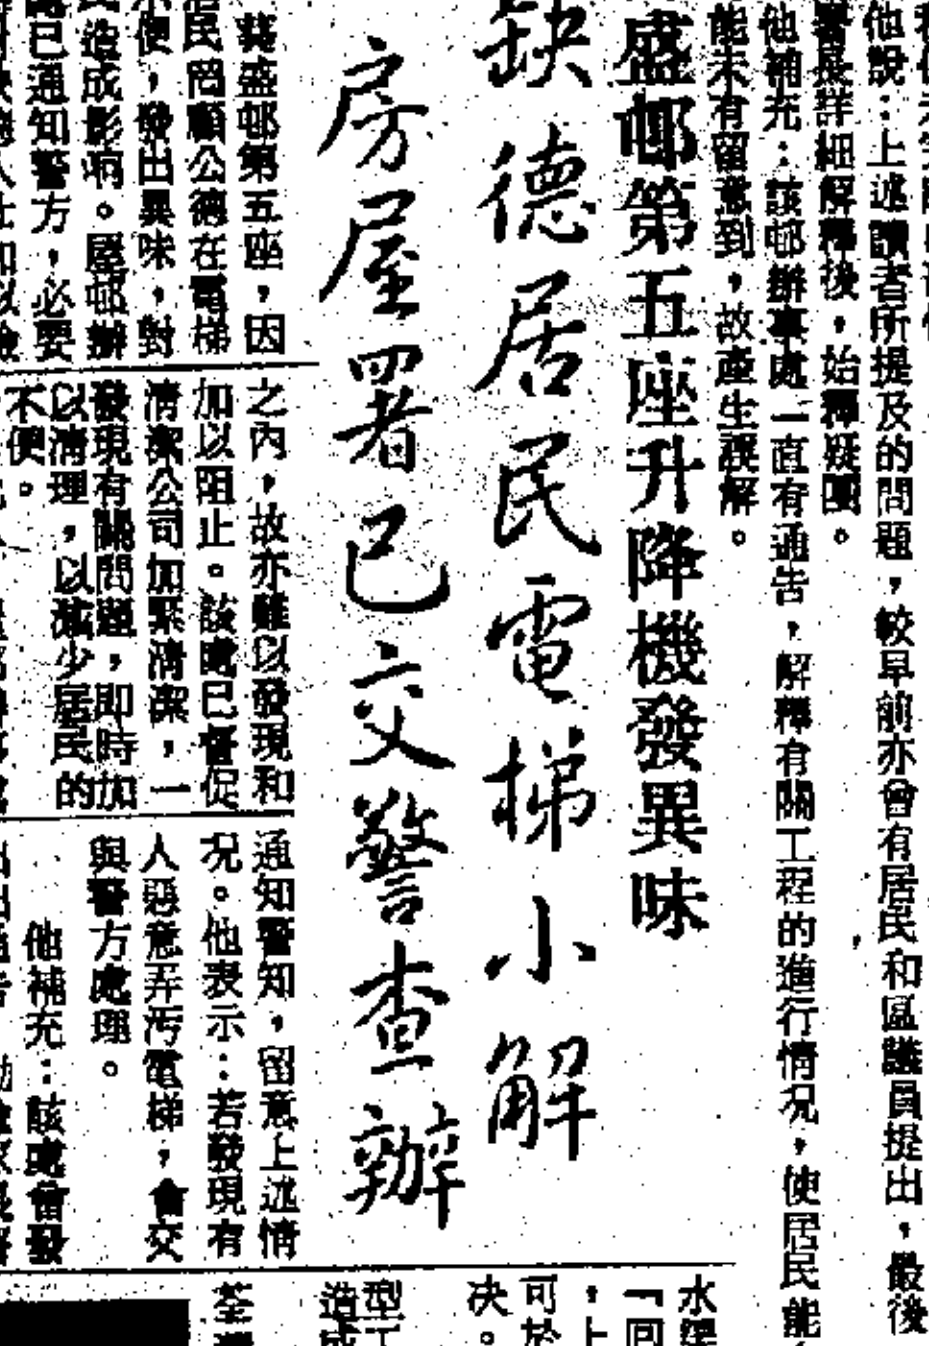 他說：上述讀者所提及的問題，較早前亦曾有居民和區議員提出，最後
詳細解釋後，始釋疑團。
他補充：該邨辦事處一直有通告，解釋有關工程的進行情況，使居民能
能未有留意到，故產生誤解。
盛邨第五座升降機發異味
缺德居民電梯小解
房屋署已交警查辦
葵盛邨第五座，因
居民罔顧公德在電梯
便，發出異味，對
造成影响。屋邨辦
已通知警方，必要
之內，故亦難以發現和
加以阻止。該處已督促
清潔公司加緊清潔，一
發現有關問題，即時加
以清理，以減少居民的
不便。
通知警知，留意上述情
況。他表示：若發現有
人惡意弄污電梯，會交
與警方處理。
他補充：該處曾發
水
「回
，上
可於
決。
型工
造成
荃灣